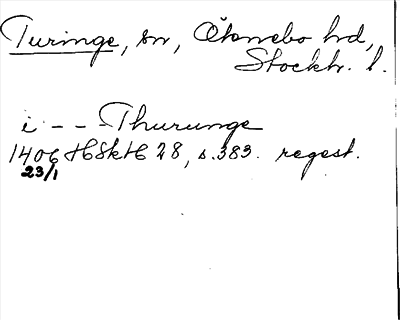 Turinge, sn, Öknebo hd,
Stockh. l.
i - - Thurunge
1406 HSkH 28, s. 383. regest.
23/1